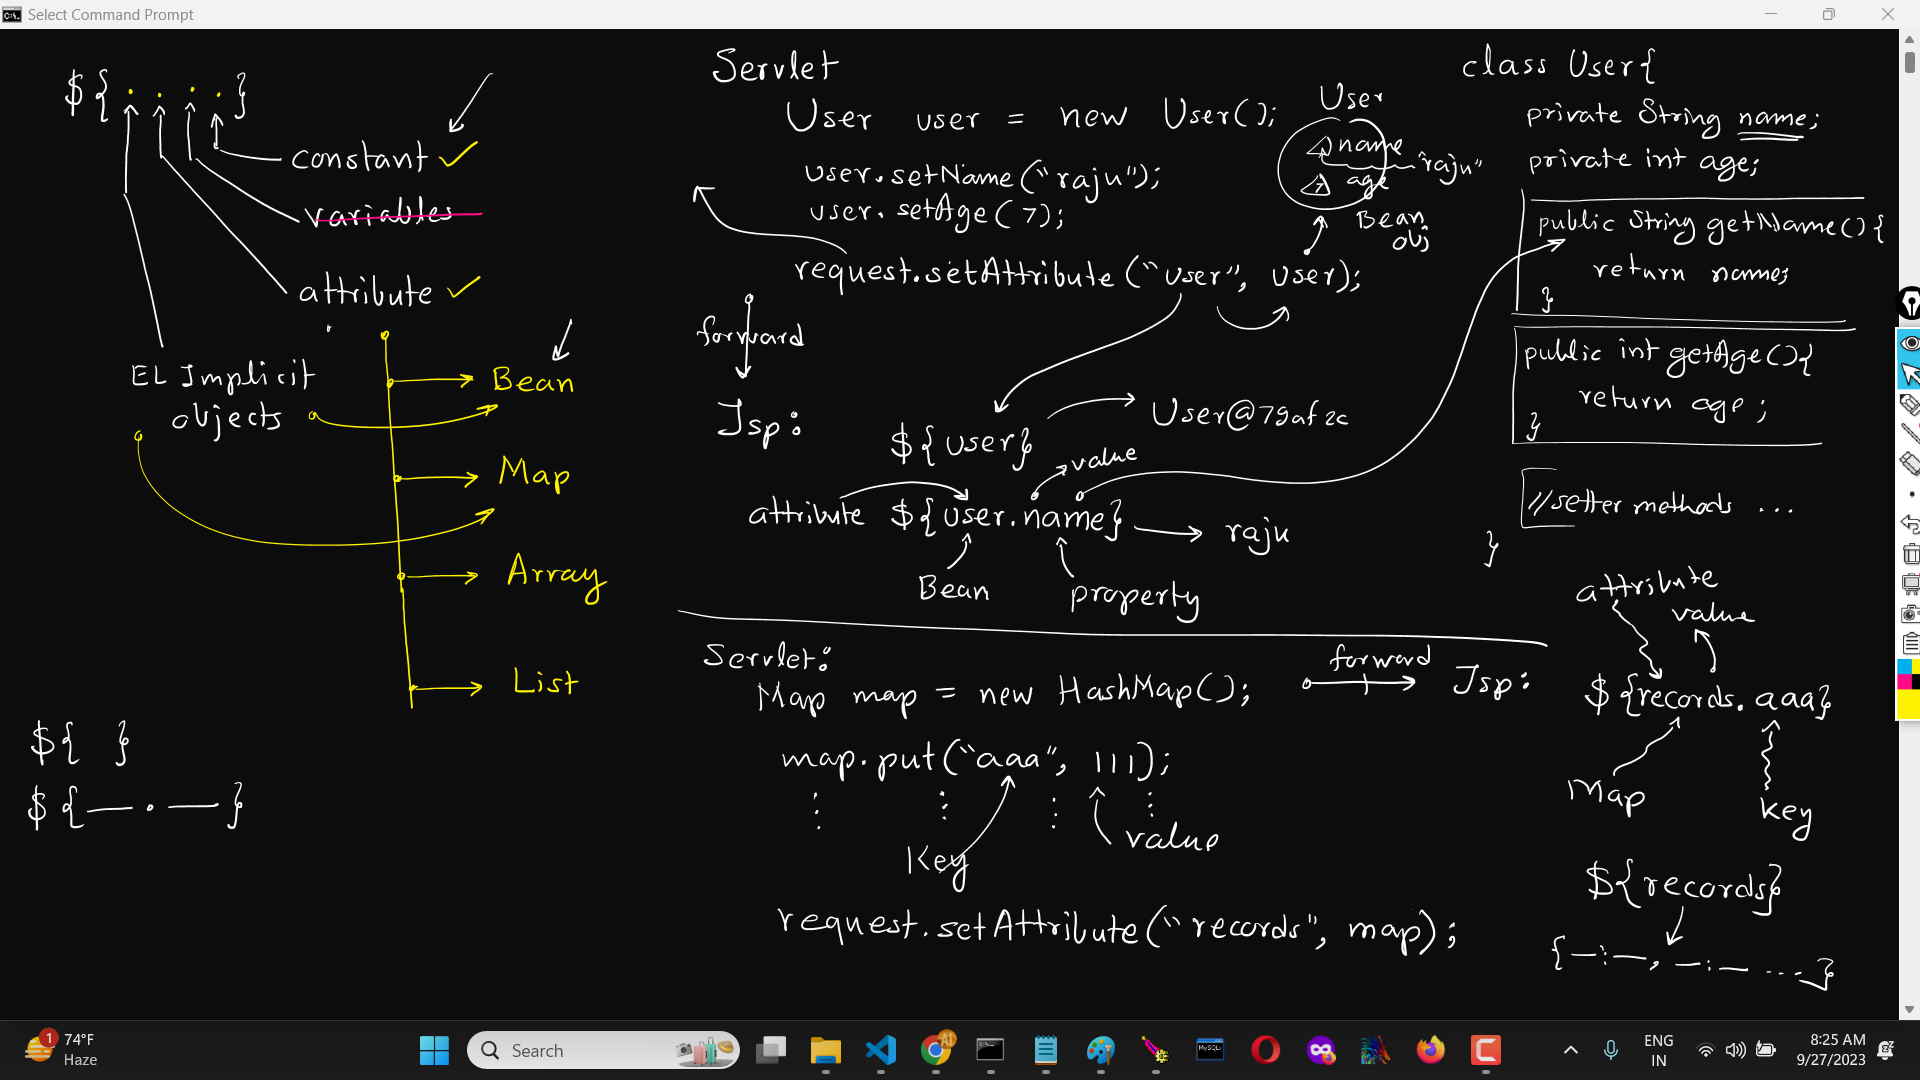 Select Command Prompt
${ . . . . }
constant
variables
attribute
EL Implicit
objects
Bean
Map
Array
List
${ }
${ — . — }
Servlet
User user = new User();
user.setName("raju");
user.setAge(7);
request.setAttribute("user", user);
User
name
"raju"
age
7
Bean
obj
forward
Jsp:
${user}
User@79af2c
value
attribute ${user.name}
raju
Bean
property
class User{
private String name;
private int age;
public String getName(){
return name;
}
public int getAge(){
return age;
}
//setter methods ...
}
Servlet:
Map map = new HashMap();
map.put("aaa", 111);
Key
value
request.setAttribute("records", map);
forward
Jsp:
attribute
value
${records.aaa}
Map
key
${records}
{—:—, —:— ...}
1
74°F
Haze
Search
MySQL
ENG
IN
8:25 AM
9/27/2023